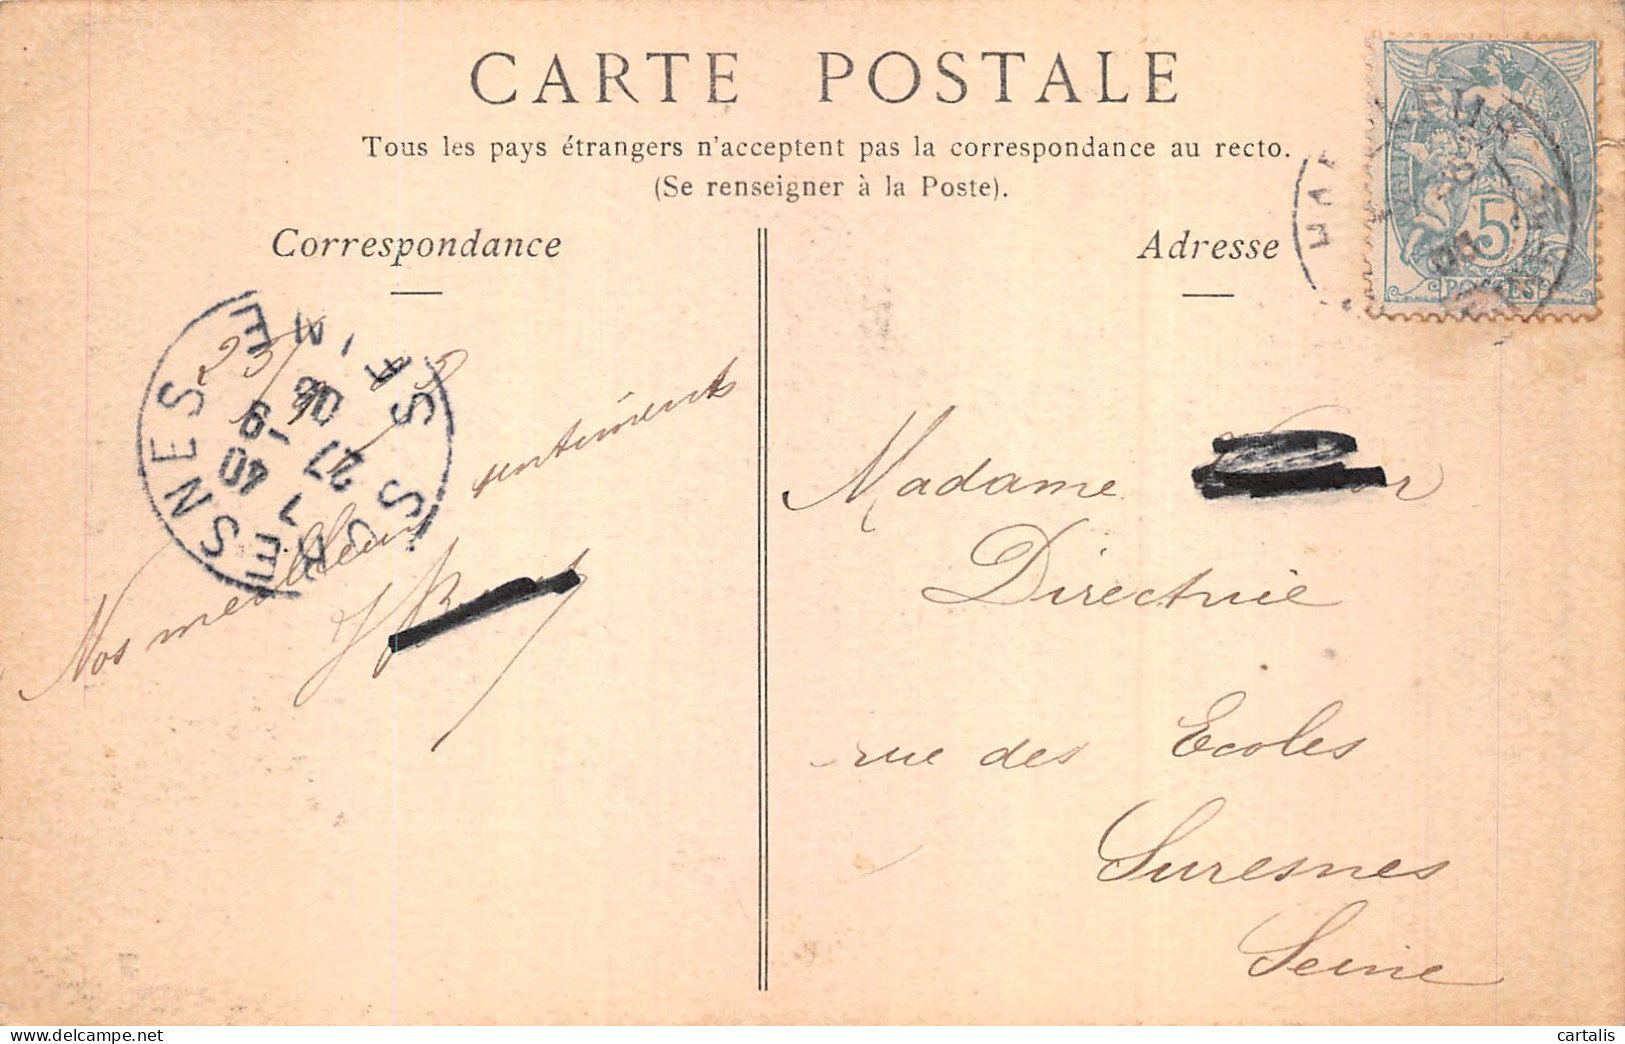 CARTE POSTALE
Tous les pays étrangers n'acceptent pas la correspondance au recto.
(Se renseigner à la Poste).
Correspondance
Adresse
5
POSTES
SURESNES SEINE
7 40
27 -9
08
Nos meilleurs sentiments
Madame
Directrice
rue des Ecoles
Suresnes
Seine
cartalis